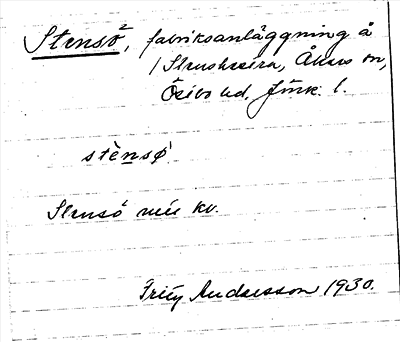 Stensö, fabriksanläggning å
/ Stenshesira, Åkers sn,
Östbo hd, Jönk. l.
stènsø
Stensö me kv.
Fritz Andersson 1930.